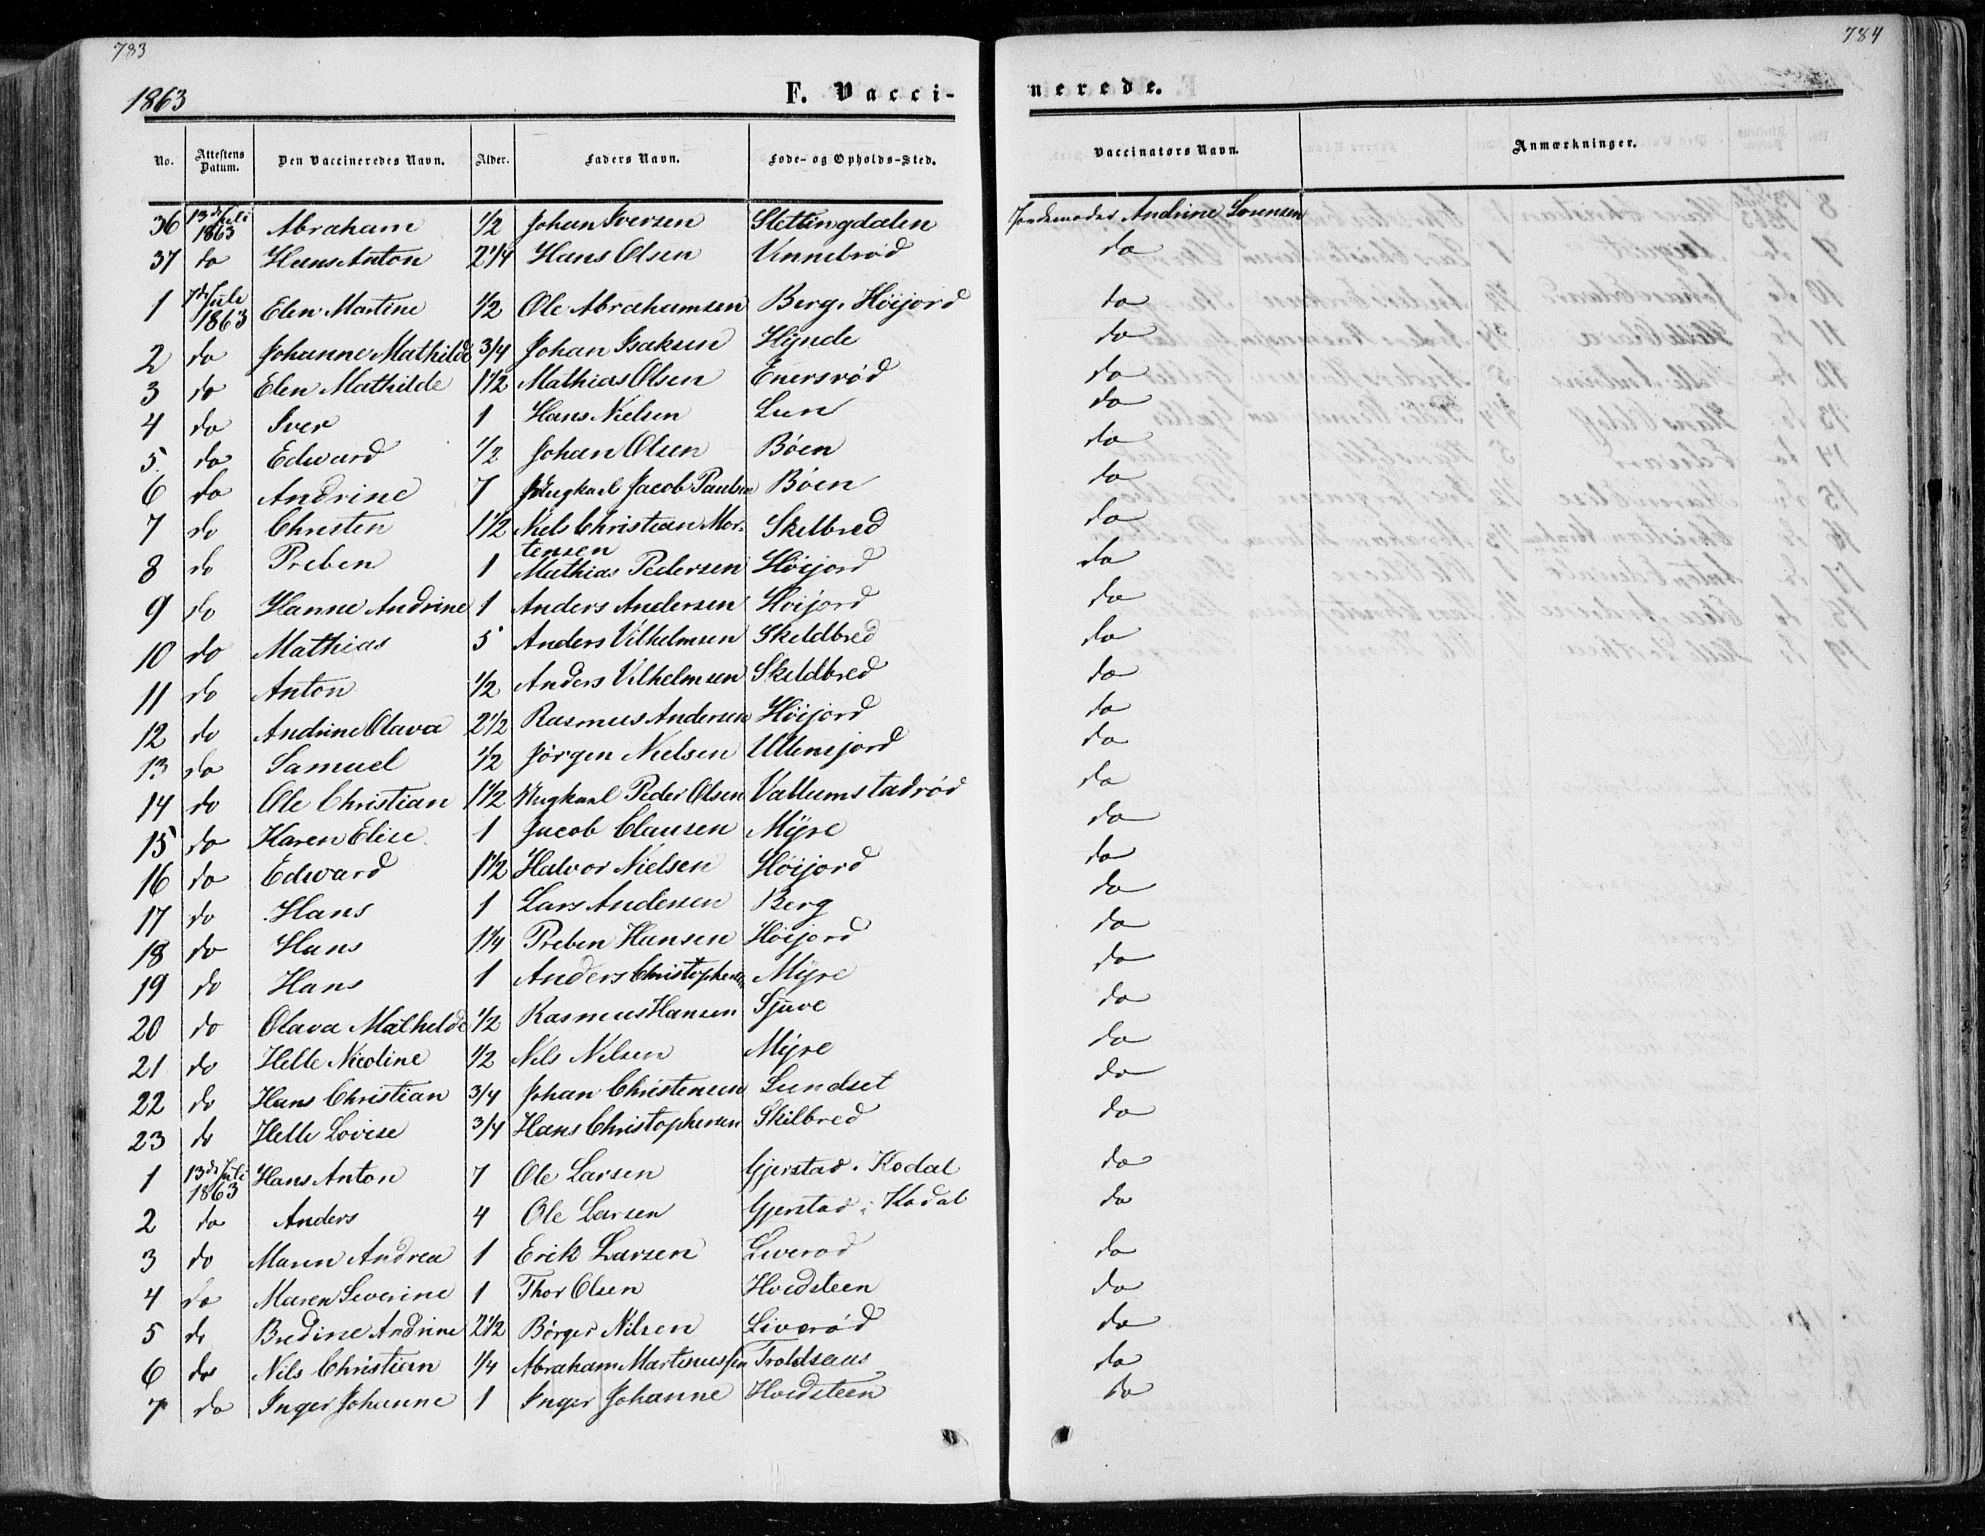 783
784
1863
F. Vacci-
nerede.
No.
Attestens Datum.
Den Vaccineredes Navn.
Alder.
Faders Navn.
Føde- og Opholds-Sted.
Vaccinators Navn.
Anmærkninger.
36 13de Juli 1863 Abraham 1/2 Johan Iversen Slettingdalen Jordemoder Andrine Sørensen
37 do Hans Anton 2 1/4 Hans Olsen Vinnebrød do
1 7de Juli 1863 Elen Martine 1/2 Ole Abrahamsen Berg, Höijord do
2 do Johanne Mathilde 3/4 Johan Isaksen Hynde do
3 do Elen Mathilde 1 1/2 Mathias Olsen Enersrød do
4 do Iver 1 Hans Nielsen Lun do
5. do Edward 1/2 Johan Olsen Böen do
6 do Andrine 7 Ungkarl Jacob Paulsen Böen do
7 do Christen 1 1/2 Niels Christian Mor-
tensen Skelbred do
8 do Preben 1 Mathias Pedersen Höijord do
9 do Hanne Andrine 1 Anders Andersen Höijord do
10 do Mathias 5 Anders Vilhelmsen Skeldbred do
11 do Anton 1/2 Anders Vilhelmsen Skeldbred do
12 do Andrine Olava 2 1/2 Rasmus Andersen Höijord do
13 do Samuel 1/2 Jørgen Nielsen Ullensjord do
14 do Ole Christian 1 1/2 Ungkarl Peder Olsen Vallumstadrød do
15 do Karen Elise 1 Jacob Clausen Mÿre do
16 do Edward 1 1/2 Halvor Nielsen Höijord do
17 do Hans 1 Lars Andersen Berg do
18 do Hans 1 1/4 Preben Hansen Höijord do
19 do Hans 1 Anders Christophersen Mÿre do
20 do Olava Mathilde 1/2 Rasmus Hansen Sjuve do
21 do Helle Nicoline 1/2 Nils Nilsen Mÿre do
22 do Hans Christian 3/4 Johan Christensen Lundset do
23 do Helle Lovise 3/4 Hans Christophersen Skilbred do
1 13de Juli 1863 Hans Anton 7 Ole Larsen Gjerstad i Kodal do
2 do Anders 4 Ole Larsen Gjerstad i Kodal do
3 do Maren Andrea 1 Erik Larsen Liverød do
4 do Maren Severine 1 Thor Olsen Hvidsteen do
5 do Bredine Andrine 2 1/2 Börger Nilsen Liverød do
6 do Nils Christian 1/4 Abraham Martinussen Troldsaas do
7 do Inger Johanne 1 Inger Johanne Hvidsteen do